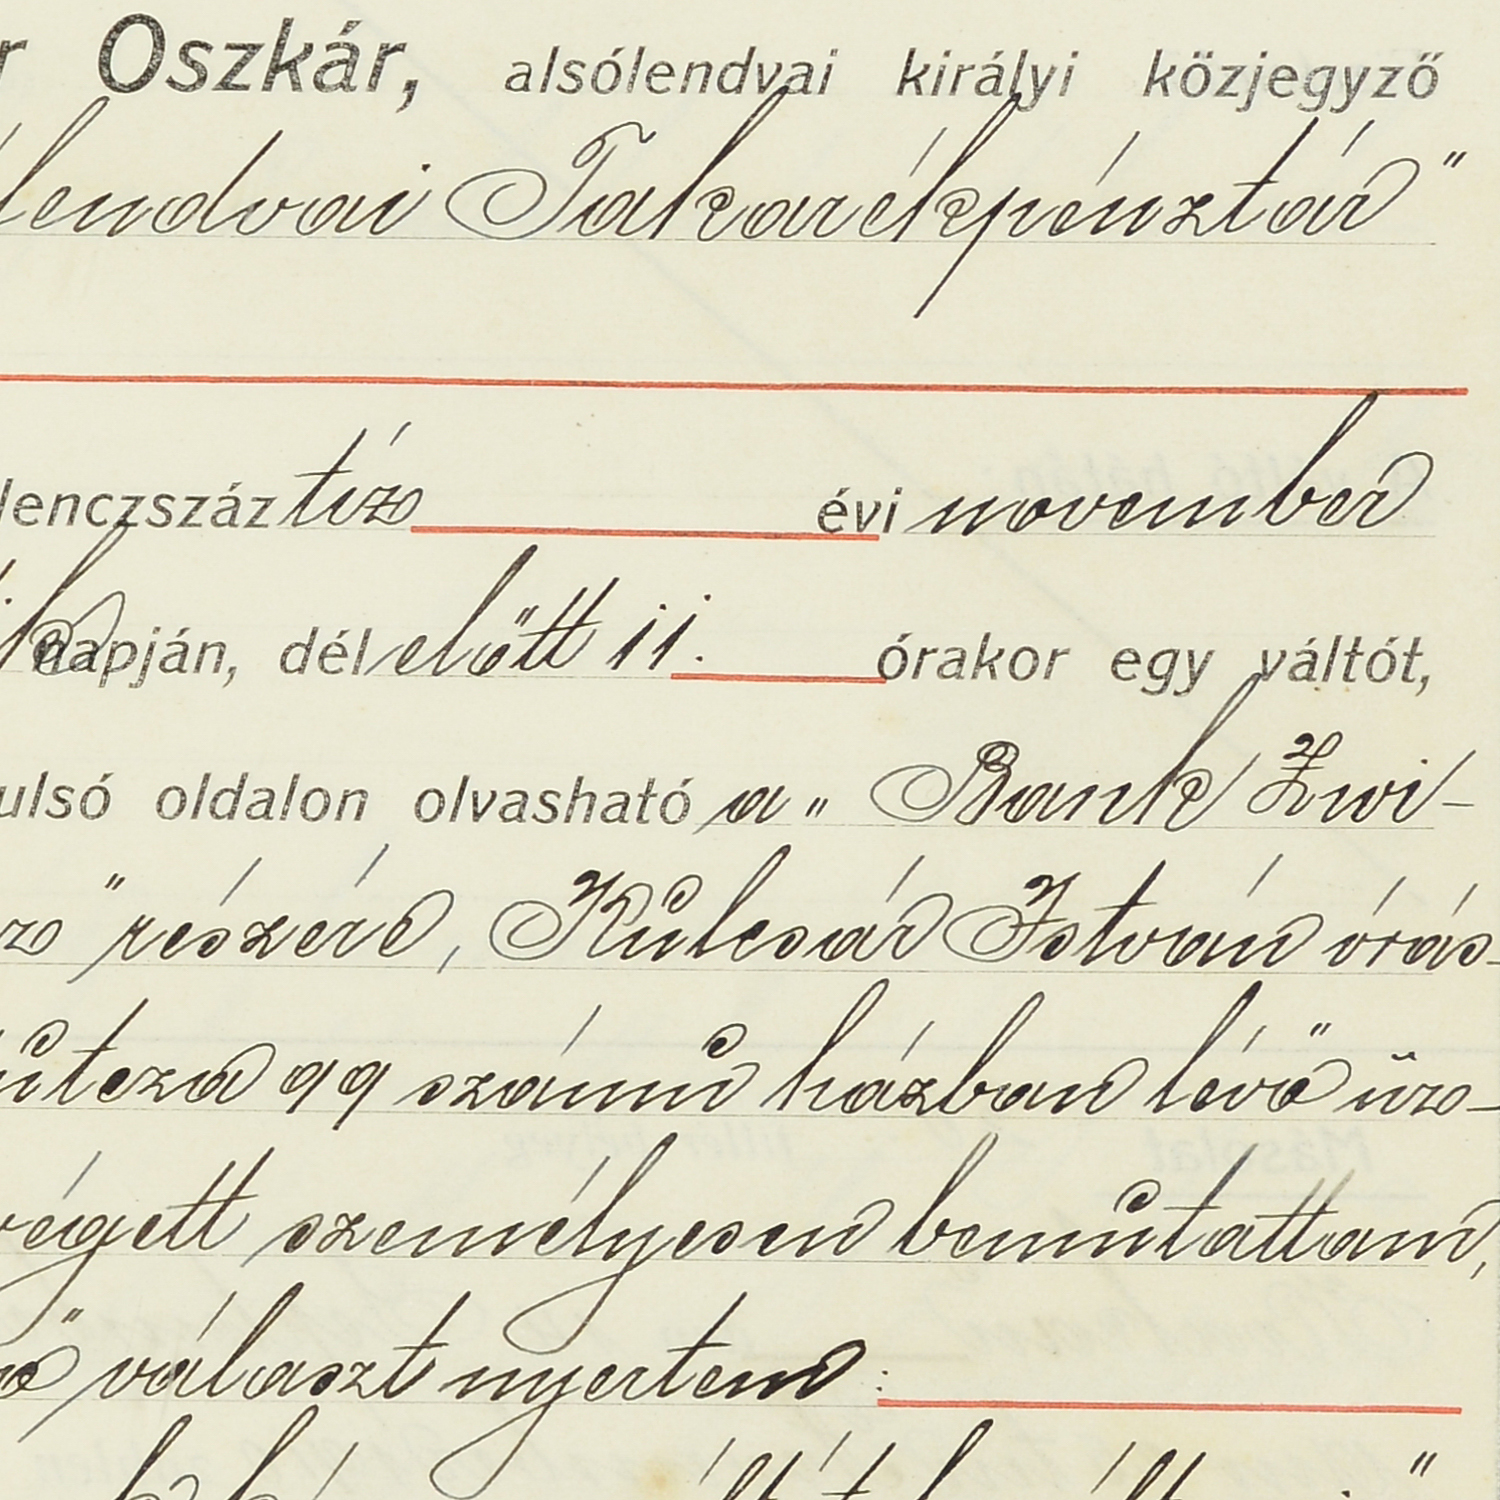 r Oszkár, alsólendvai királyi közjegyző
lendvai Takarékpénztár"
lenczszáz tíz évi november
napján, dél előtt 11. órakor egy váltót,
ulsó oldalon olvasható a „Bank Zwi-
zo" részére, Kulcsár István órás-
utcza 99 számu házban lévő üz-
végett személyesen bemutattam,
ő választ nyertem: